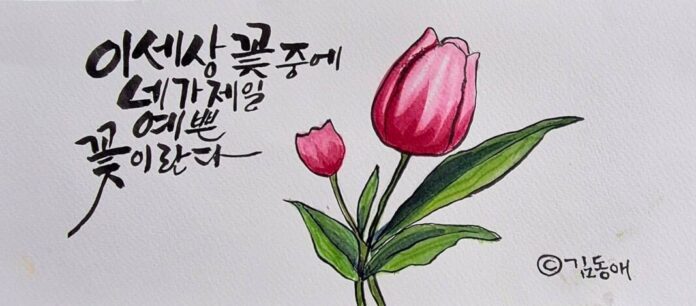 이세상 꽃 중에
네가 제일
예쁜
꽃이란다
©김동애